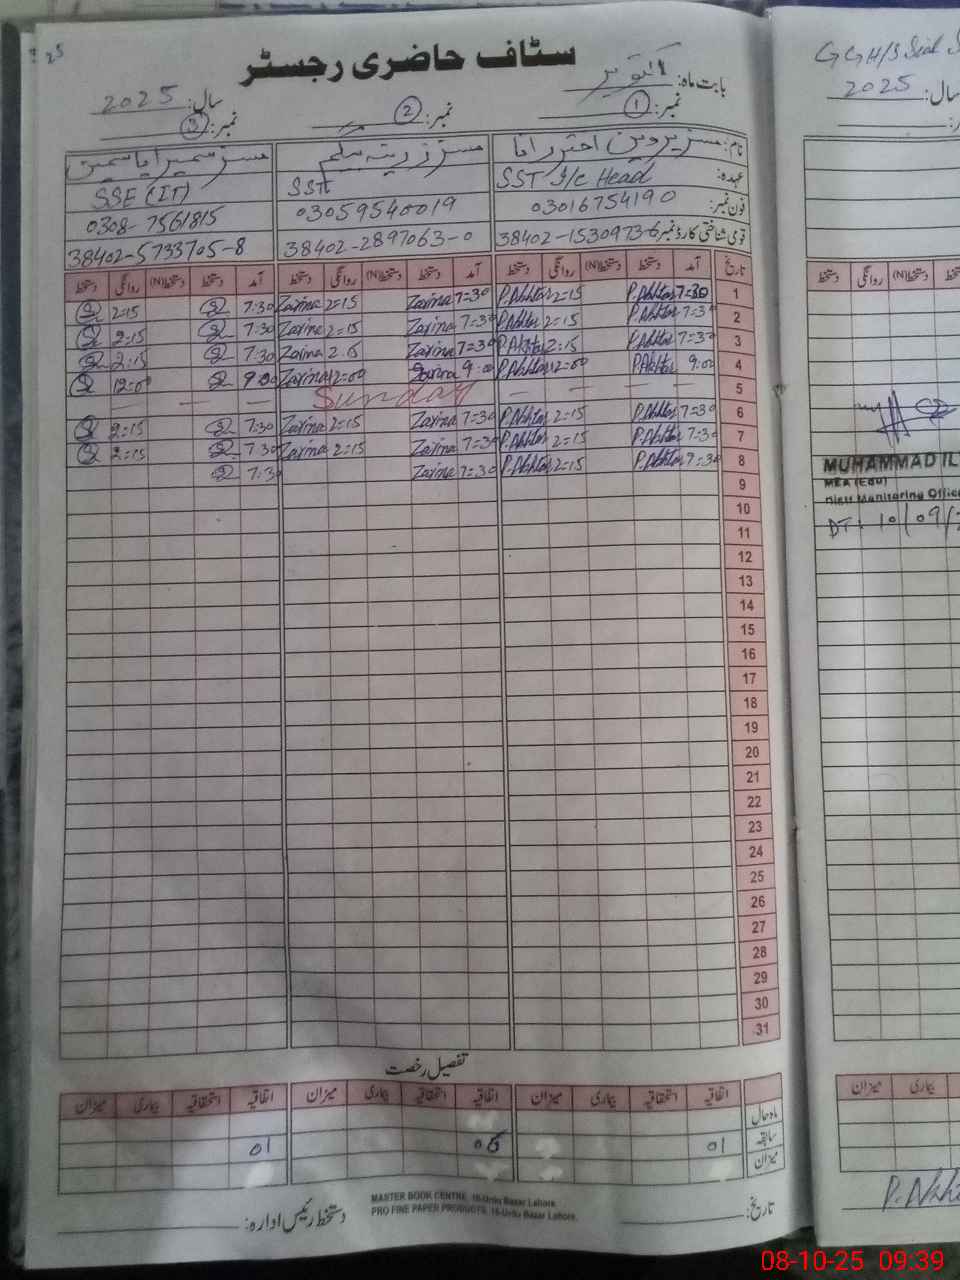 25
سٹاف حاضری رجسٹر
بابت ماہ: اکتوبر
سال: 2025
نمبر: 1 نمبر: 2 نمبر: 3
نام: مسز پروین اختر رانا مسز زرینہ بیگم مسز سمیرا یاسمین
عہدہ: SST I/c Head SST SSE (IT)
فون نمبر: 03016754190 03059540019 0308-7561815
قومی شناختی کارڈ نمبر 38402-1530973-6 38402-2897063-0 38402-5733705-8
تاریخ آمد دستخط دستخط(N) روانگی دستخط آمد دستخط دستخط(N) روانگی دستخط آمد دستخط دستخط(N) روانگی دستخط
1 7:30 P.Akhtar 2:15 P.Akhtar 7=30 Zarina 2=15 Zarina 7:30 2:15
2 7=30 P.Akhtar 2=15 P.Akhtar 7=30 Zarina 2=15 Zarina 7:30 2:15
3 7=30 P.Akhtar 2=15 P.Akhtar 7=30 Zarina 2:15 Zarina 7:30 2:15
4 9:00 P.Akhtar 12=00 P.Akhtar 9:00 Zarina 12=00 Zarina 9:00 12:00
5 — — — Sunday — — —
6 7=30 P.Akhtar 2=15 P.Akhtar 7=30 Zarina 2=15 Zarina 7:30 2:15
7 7=30 P.Akhtar 2=15 P.Akhtar 7=30 Zarina 2=15 Zarina 7:30 2:15
8 7=30 P.Akhtar 2=15 P.Akhtar 7=30 Zarina 7:30
9
10
11
12
13
14
15
16
17
18
19
20
21
22
23
24
25
26
27
28
29
30
31
تفصیل رخصت
اتفاقیہ استحقاقیہ بیماری میزان اتفاقیہ استحقاقیہ بیماری میزان اتفاقیہ استحقاقیہ بیماری میزان
ماہ حال
سابقہ 01 06 01
میزان
تاریخ: دستخط رئیس ادارہ:
MASTER BOOK CENTRE, 16-Urdu Bazar Lahore.
PRO FINE PAPER PRODUCTS, 16-Urdu Bazar Lahore.
GGH/S
سال: 2025
دستخط روانگی دستخط(N) دستخط
MUHAMMAD IL
MEA (Edu)
Distt Monitoring Office
DT: 10/09/2
میزان بیماری
P.Akh
08-10-25 09:39